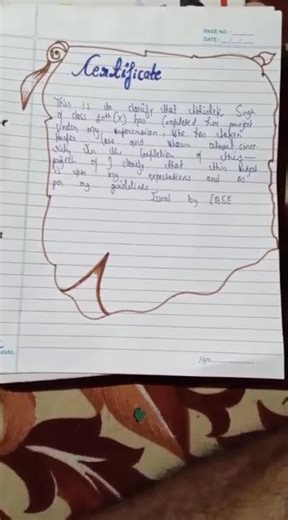 PAGE NO.
DATE :
Certificate
This is to clarify that Abhishek Singh
of class 10th (X) has Completed her project
Under my supervision, who has taken
proper care and shown almost sincer
rity In the Completion of this
project of I clarify that this Project
is upto my expectations and as
per my guidelines.
Issued by CBSE
Sign